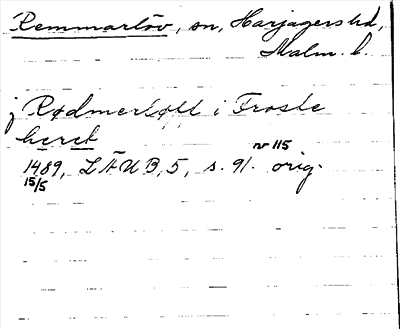 Remmarlöv, sn, Harjagers hd,
Malm. l.
j Rødmerløff i Froste
heret
nr 115
1489, LÄUB, 5, s. 91. orig.
15/5